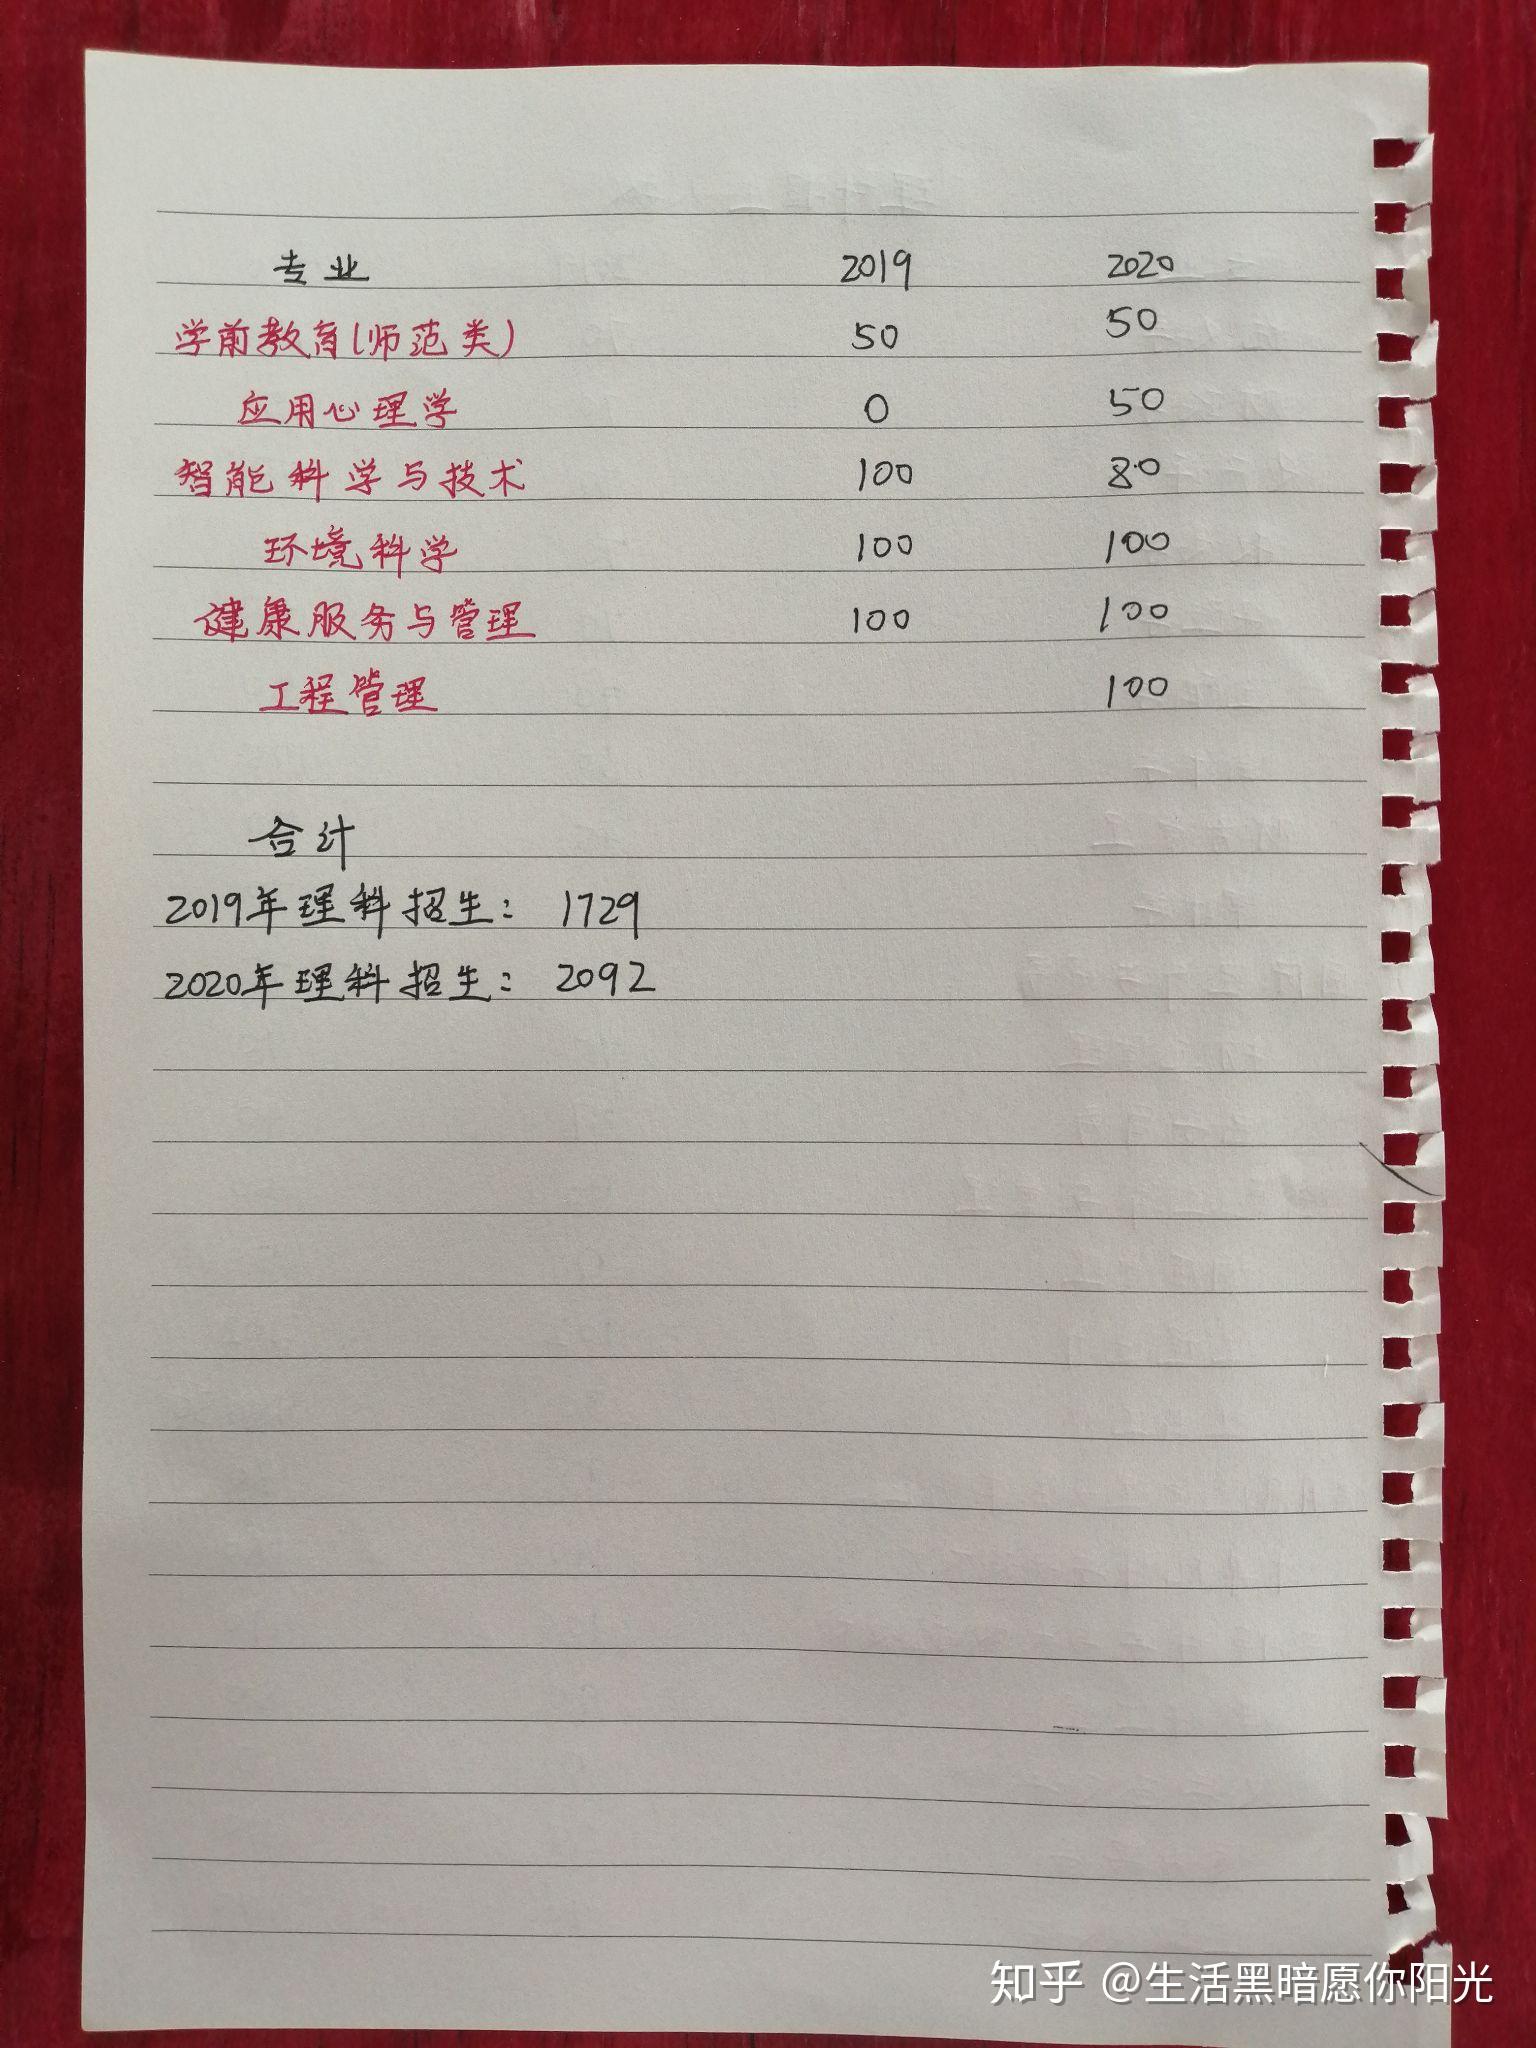 专业 2019 2020
学前教育(师范类) 50 50
应用心理学 0 50
智能科学与技术 100 80
环境科学 100 100
健康服务与管理 100 100
工程管理 100
合计
2019年理科招生: 1729
2020年理科招生: 2092
知乎 @生活黑暗愿你阳光